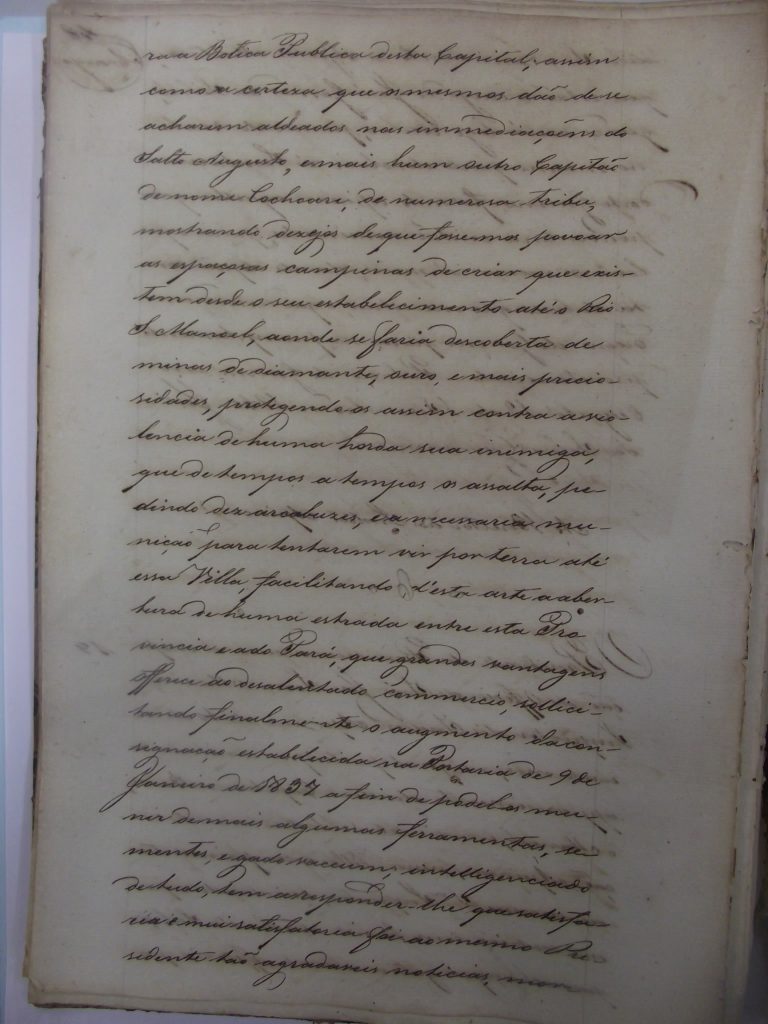 ra a Botica Publica desta Capital; assim
como a certeza que os mesmos dão de se
acharem aldeados nas immediaçoẽns do
Salto Augusto, e mais hum outro Capitão
de nome Cochoari, de numerosa tribu,
mostrando dezejos de que fossemos povoar
as espaçosas campinas de criar que exis-
tem desde o seu estabelecimento até o Rio
S. Manoel, aonde se faria descoberta de
minas de diamante, ouro, e mais precio-
sidades, protegendo os assim contra a vio-
lencia de huma horda sua inimiga,
que de tempos a tempos os assalta, pe-
dindo dez arcabuzes, e a necessaria mu-
nição para tentarem vir por terra até
essa Villa, facilitando d'esta arte a aber-
tura de huma estrada entre esta Pro
vincia e a do Pará, que grandes vantagens
offerece ao desalentado commercio, sollici-
tando finalmente o augmento da con-
signação estabelecida na Portaria de 9 de
Janeiro de 1837 a fim de podel-os mu-
nir de mais algumas ferramentas, se
mentes, e gado vaccum; intelligenciado
de tudo, tem a responder-lhe que satisfa-
ria e mui satisfatoria foi ao mesmo Pre
sidente tão agradaveis noticias,